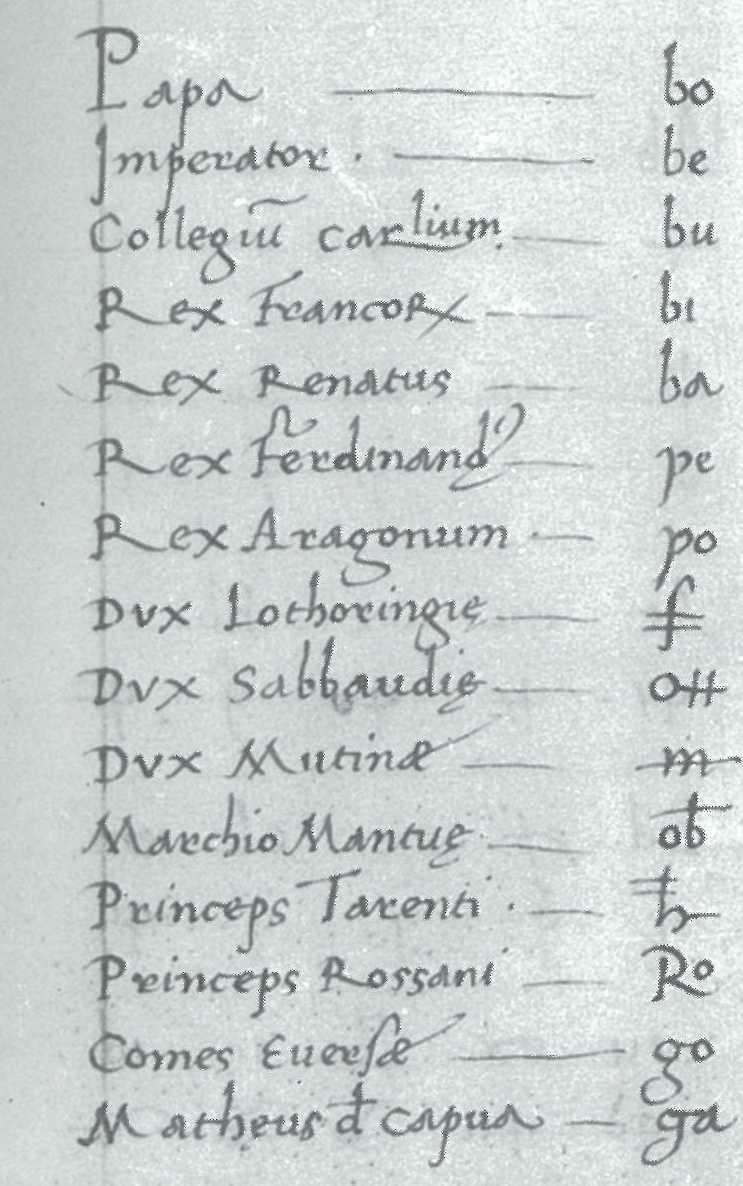 Papa — bo
Imperator · — be
Collegiū carlium. — bu
Rex Francorꝝ — bı
Rex Renatus — ba
Rex Ferdinandꝰ — pe
Rex Aragonum · — po
Dvx Lothoringię — f
Dvx Sabbaudię — o
Dvx Mutinæ — m
Marchio Mantuę — ob̄
Princeps Tarenti · —
Princeps Rossani — Ro
Comes Euerſæ — go
Matheus đ capua — ga